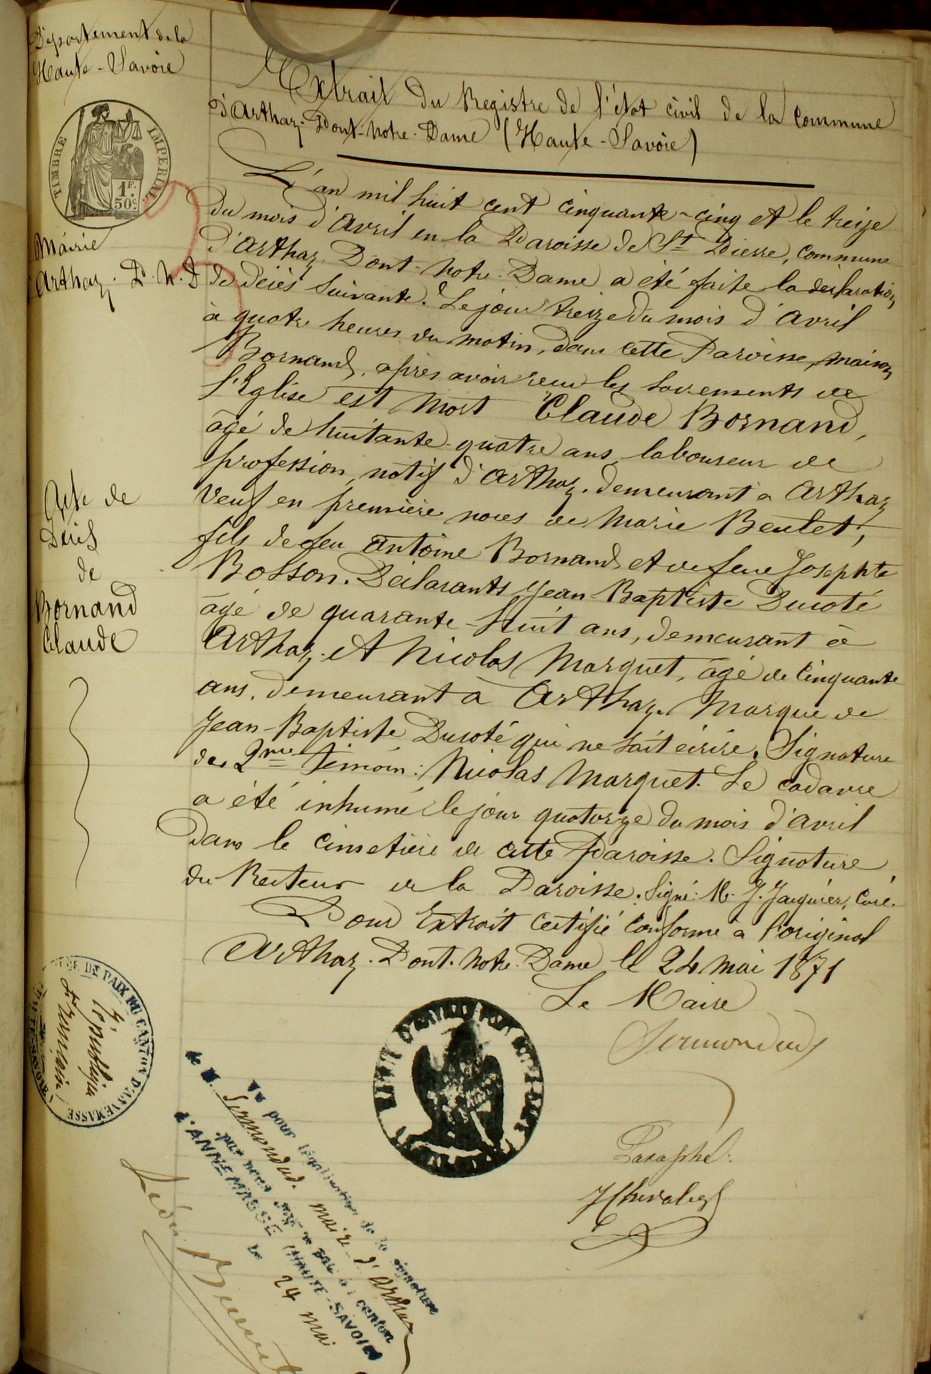 Département de la
Haute-Savoie
TIMBRE IMPERIAL
1 F.
50 c.
Mairie
Arthaz. P. N. D
Acte de
Décès
de
Bornand
Claude
Extrait du Registre de l'état civil de la commune
d'Arthaz-Pont-Notre-Dame (Haute-Savoie)
L'an mil huit cent cinquante-cinq et le treize
du mois d'Avril en la Paroisse de St Pierre, commune
d'Arthaz Pont-Notre-Dame a été faite la déclaration
de décès suivante. Le jour treize du mois d'Avril
à quatre heures du matin, dans cette Paroisse, maison
Bornand, après avoir reçu les sacrements de
l'Eglise est mort Claude Bornand,
âgé de huitante-quatre ans, laboureur de
profession, natif d'Arthaz, demeurant à Arthaz
Veuf en première noces de Marie Beulet,
fils de feu Antoine Bornand et de feue Josephte
Bosson. Déclarants Jean-Baptiste Ducoté
âgé de quarante-huit ans, demeurant à
Arthaz. Et Nicolas Marquet, âgé de cinquante
ans, demeurant à Arthaz. Marque de
Jean-Baptiste Ducoté qui ne sait écrire. Signature
de 2me Témoin: Nicolas Marquet. Le cadavre
a été inhumé le jour quatorze du mois d'avril
Dans le cimetière de cette Paroisse. Signature
du Recteur de la Paroisse. Signé: M. J. Jacquier, Curé.
Pour Extrait certifié conforme à l'original
Arthaz-Pont-Notre-Dame le 24 mai 1871
Le Maire
Sermondad
DE PAIX DU CANTON D'ANNEMASSE
République
Française
Vu pour légalisation de la signature
de M. Sermondad, maire d'Arthaz
par nous juge de paix du canton
d'ANNEMASSE (HAUTE-SAVOIE)
le 24 mai
Paraphé